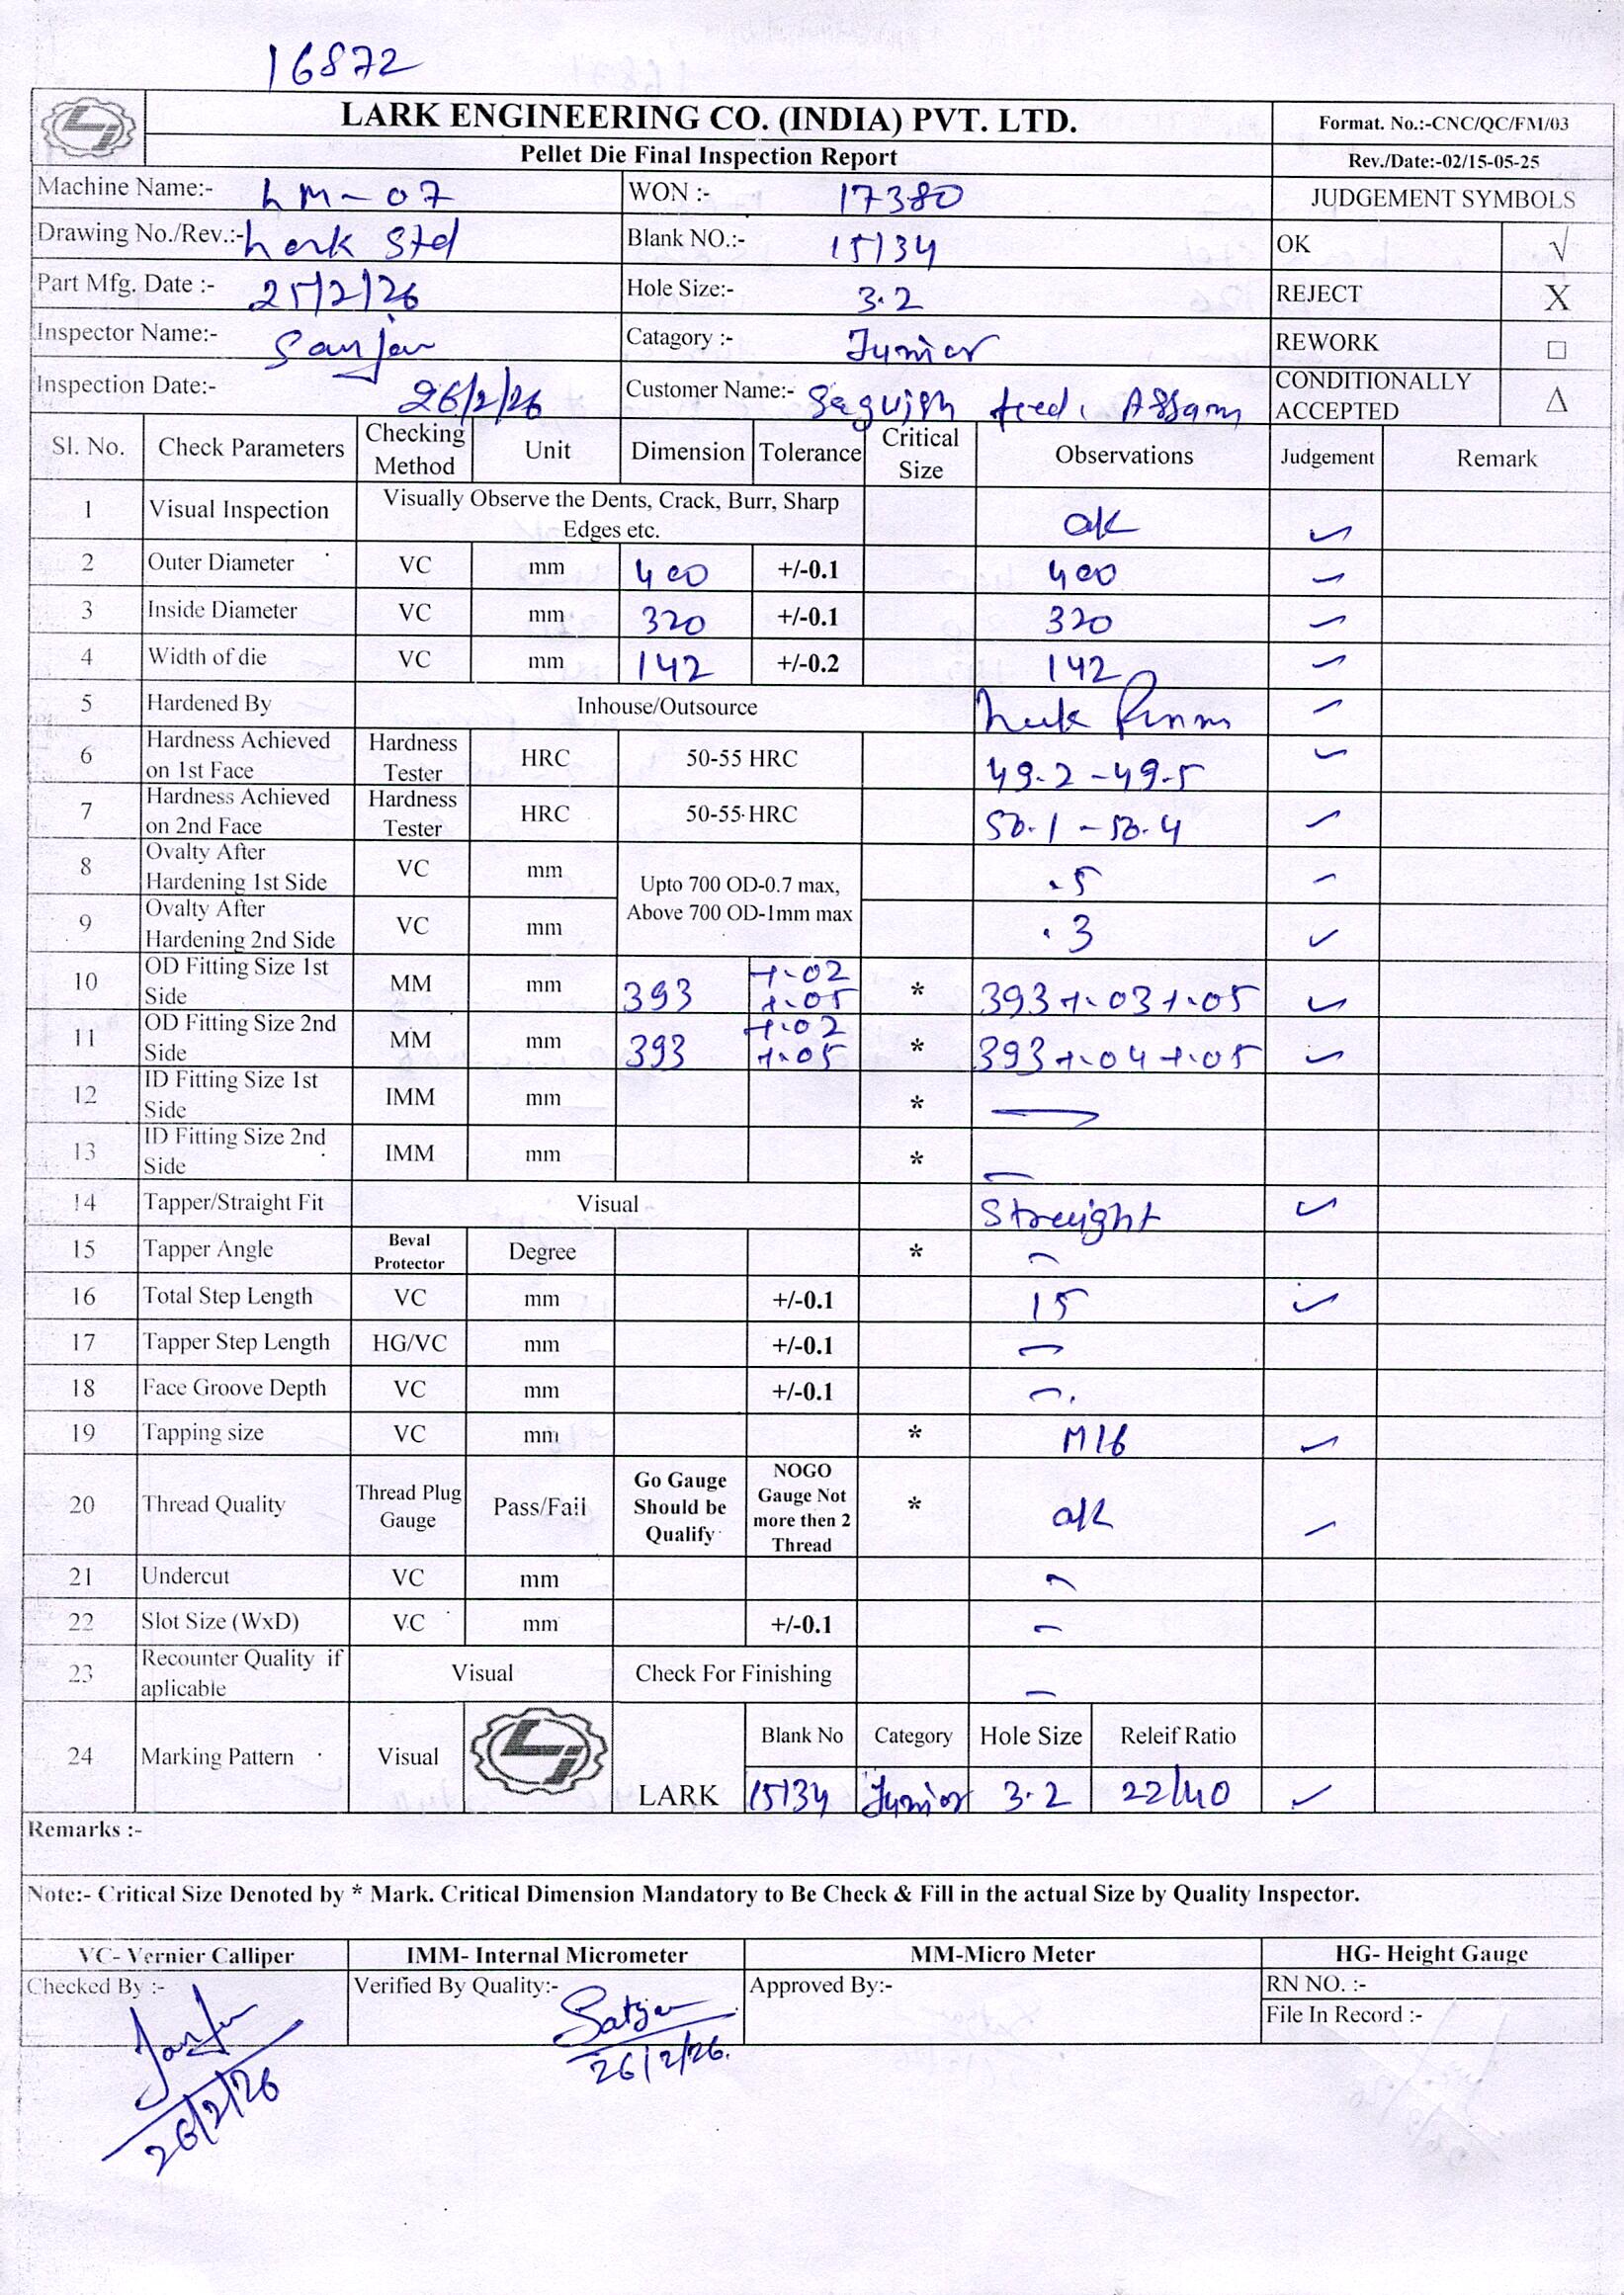 16872
LARK ENGINEERING CO. (INDIA) PVT. LTD.
Format. No.:-CNC/QC/FM/03
Pellet Die Final Inspection Report
Rev./Date:-02/15-05-25
Machine Name:- LM-07 WON :- 17380 JUDGEMENT SYMBOLS
Drawing No./Rev.:- Lark Std Blank NO.:- 15134 OK √
Part Mfg. Date :- 25/2/26 Hole Size:- 3.2 REJECT X
Inspector Name:- Sanjav Catagory :- Junior REWORK □
Inspection Date:- 26/2/26 Customer Name:- feed, Assam CONDITIONALLY ACCEPTED Δ
Sl. No. Check Parameters Checking Method Unit Dimension Tolerance Critical Size Observations Judgement Remark
1 Visual Inspection Visually Observe the Dents, Crack, Burr, Sharp Edges etc. ok ✓
2 Outer Diameter VC mm 400 +/-0.1 400 ✓
3 Inside Diameter VC mm 320 +/-0.1 320 ✓
4 Width of die VC mm 142 +/-0.2 142 ✓
5 Hardened By Inhouse/Outsource ✓
6 Hardness Achieved on 1st Face Hardness Tester HRC 50-55 HRC 49.2-49.5 ✓
7 Hardness Achieved on 2nd Face Hardness Tester HRC 50-55 HRC 50.1-50.4 ✓
8 Ovalty After Hardening 1st Side VC mm Upto 700 OD-0.7 max, Above 700 OD-1mm max .5 ✓
9 Ovalty After Hardening 2nd Side VC mm .3 ✓
10 OD Fitting Size 1st Side MM mm 393 +.02 +.05 * 393+.03+.05 ✓
11 OD Fitting Size 2nd Side MM mm 393 +.02 +.05 * 393+.04+.05 ✓
12 ID Fitting Size 1st Side IMM mm * —
13 ID Fitting Size 2nd Side IMM mm * —
14 Tapper/Straight Fit Visual Streight ✓
15 Tapper Angle Beval Protector Degree * —
16 Total Step Length VC mm +/-0.1 15 ✓
17 Tapper Step Length HG/VC mm +/-0.1 —
18 Face Groove Depth VC mm +/-0.1 —
19 Tapping size VC mm * M16 ✓
20 Thread Quality Thread Plug Gauge Pass/Fail Go Gauge Should be Qualify NOGO Gauge Not more then 2 Thread * ok ✓
21 Undercut VC mm —
22 Slot Size (WxD) VC mm +/-0.1 —
23 Recounter Quality if aplicable Visual Check For Finishing —
24 Marking Pattern Visual LARK Blank No Category Hole Size Releif Ratio
15134 Junior 3.2 22/40 ✓
Remarks :-
Note:- Critical Size Denoted by * Mark. Critical Dimension Mandatory to Be Check & Fill in the actual Size by Quality Inspector.
VC- Vernier Calliper IMM- Internal Micrometer MM-Micro Meter HG- Height Gauge
Checked By :- Verified By Quality:- Approved By:- RN NO. :-
File In Record :-
26/2/26 26/2/26.